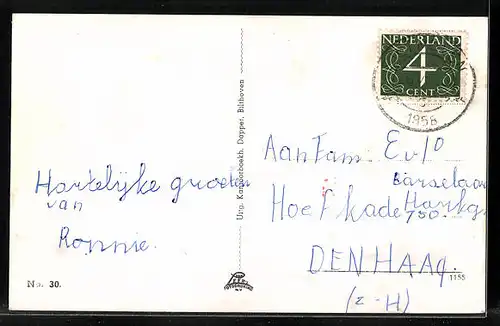 Hartelijke groeten
van
Ronnie.
No. 30.
Uitg. Kantoorboekh. Dapper, Bilthoven
NEDERLAND
4
CENT
1958
Aan Fam
Hoefkade 750.
DEN HAAg.
(Z-H)
1155